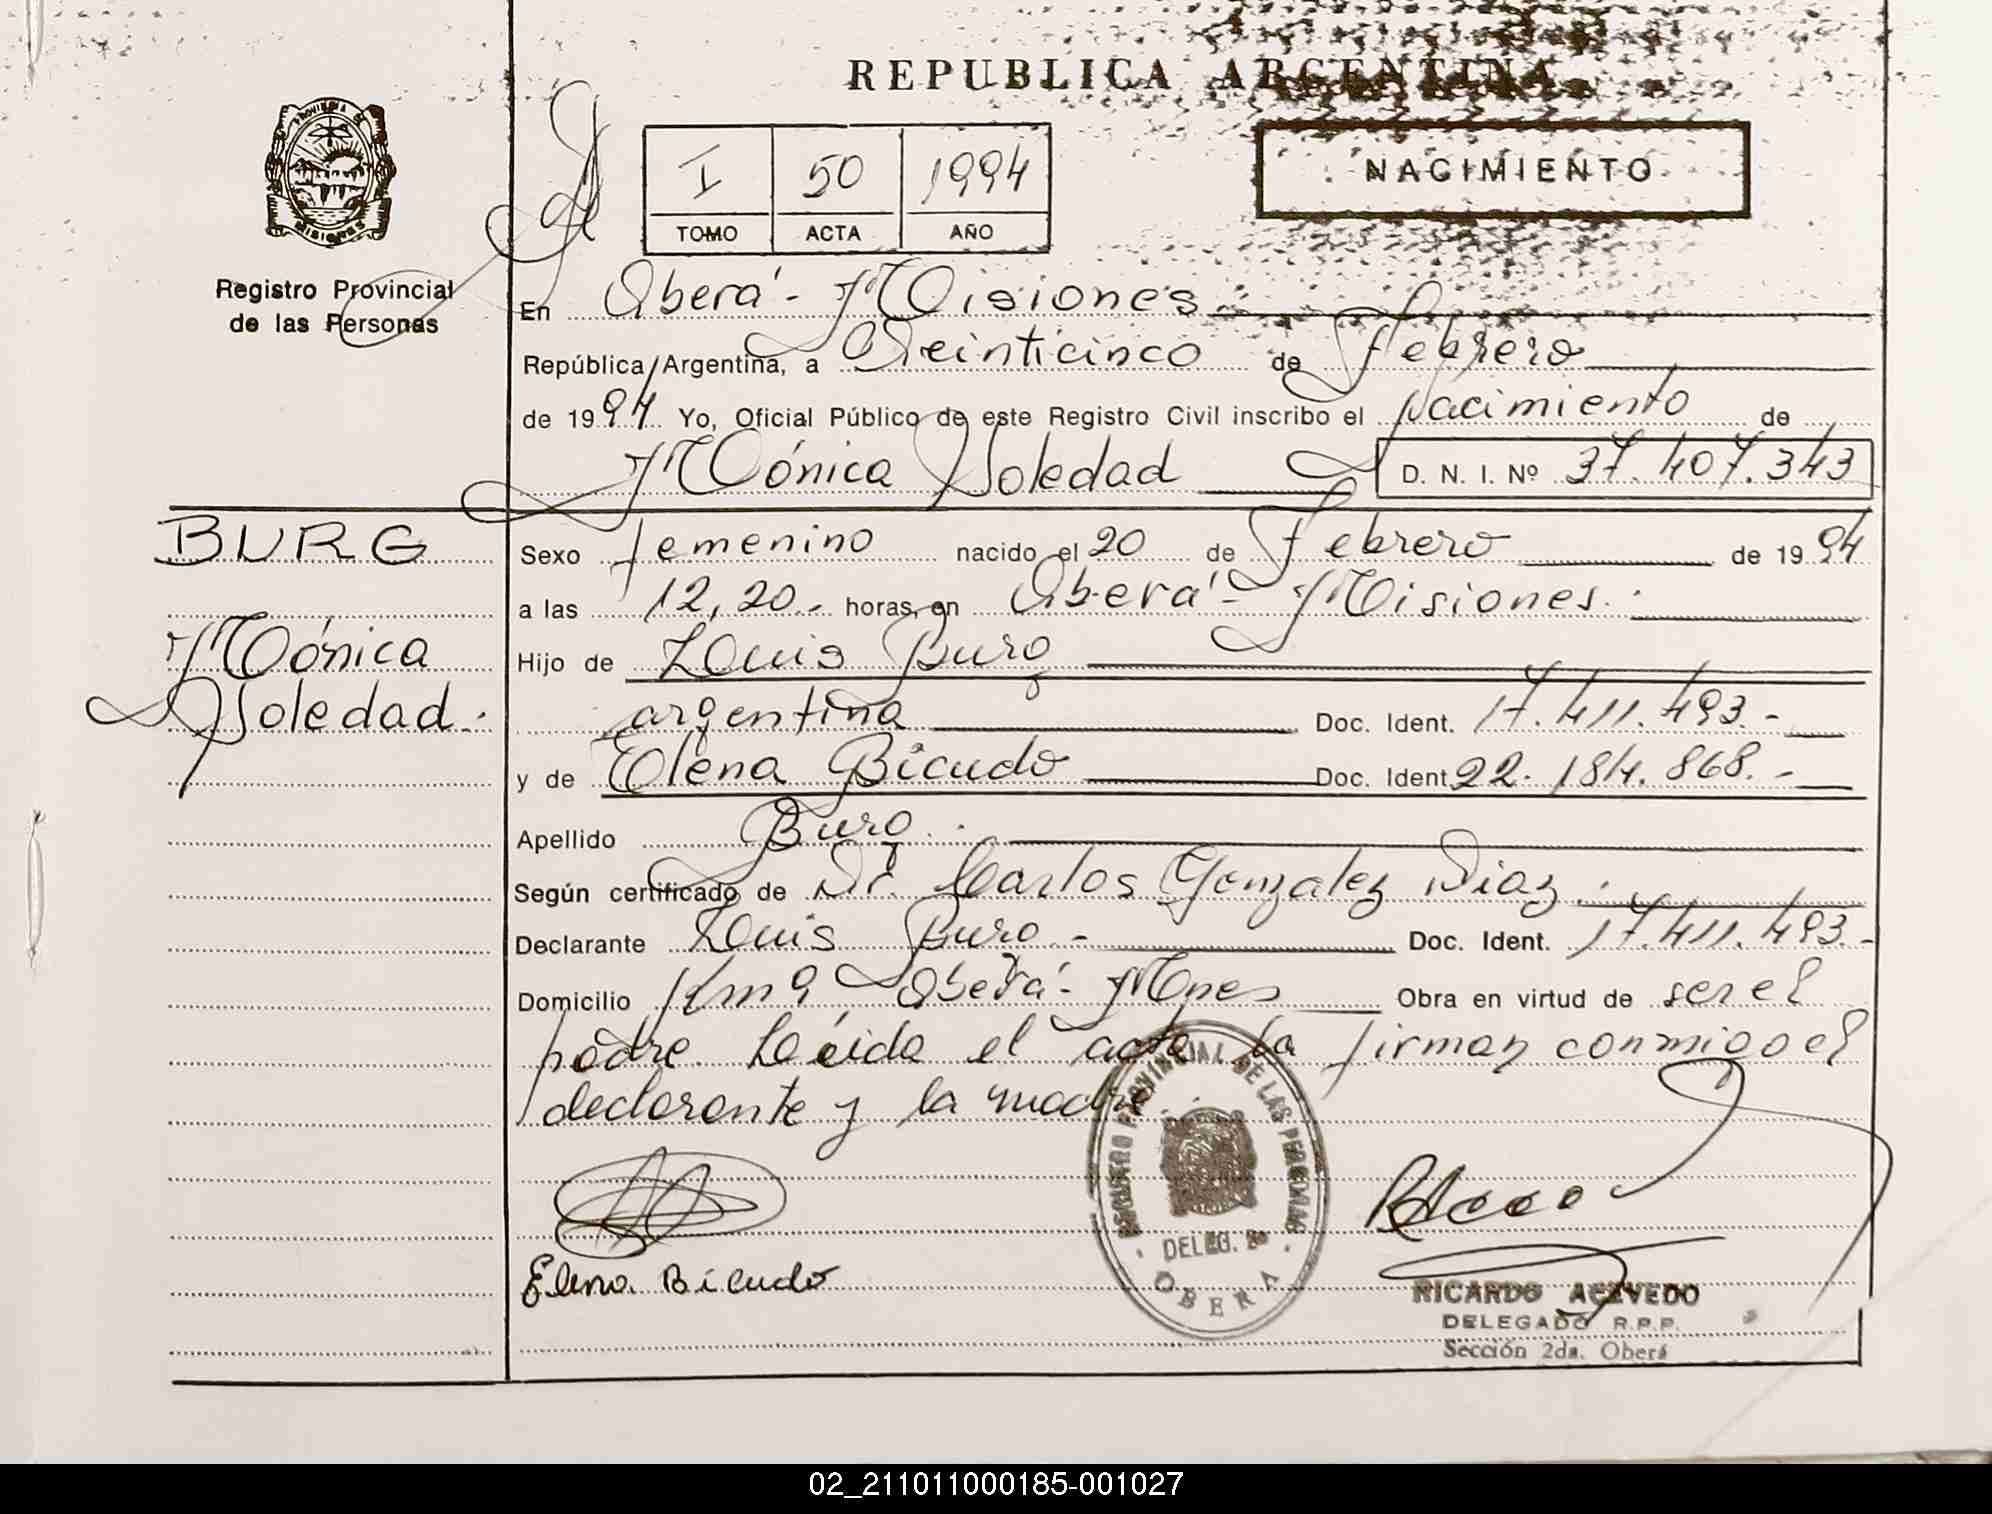 REPUBLICA ARGENTINA
PROVINCIA DE
MISIONES
Registro Provincial
de las Personas
I 50 1994
TOMO ACTA AÑO
NACIMIENTO
En Oberá - Misiones
República Argentina, a Veinticinco de Febrero
de 1994 Yo, Oficial Público de este Registro Civil inscribo el Nacimiento de
Mónica Soledad D. N. I. Nº 37.407.343
BURG
Mónica
Soledad.
Sexo femenino nacido el 20 de Febrero de 1994
a las 12,20.- horas, en Oberá - Misiones.
Hijo de Luis Burg
argentina Doc. Ident. 17.411.493.-
y de Elena Bicudo Doc. Ident. 22.184.868.-
Apellido Burg.
Según certificado de Dr. Carlos Gonzalez Diaz.
Declarante Luis Burg.- Doc. Ident. 17.411.493.-
Domicilio Km 9 Oberá - Mnes Obra en virtud de ser el
padre. Leída el acta la firman conmigo el
declarante y la madre.
REGISTRO PROVINCIAL DE LAS PERSONAS
DELEG. 2ª
OBERA
Elena Bicudo
RICARDO ACEVEDO
DELEGADO R.P.P.
Sección 2da. Oberá
02_211011000185-001027